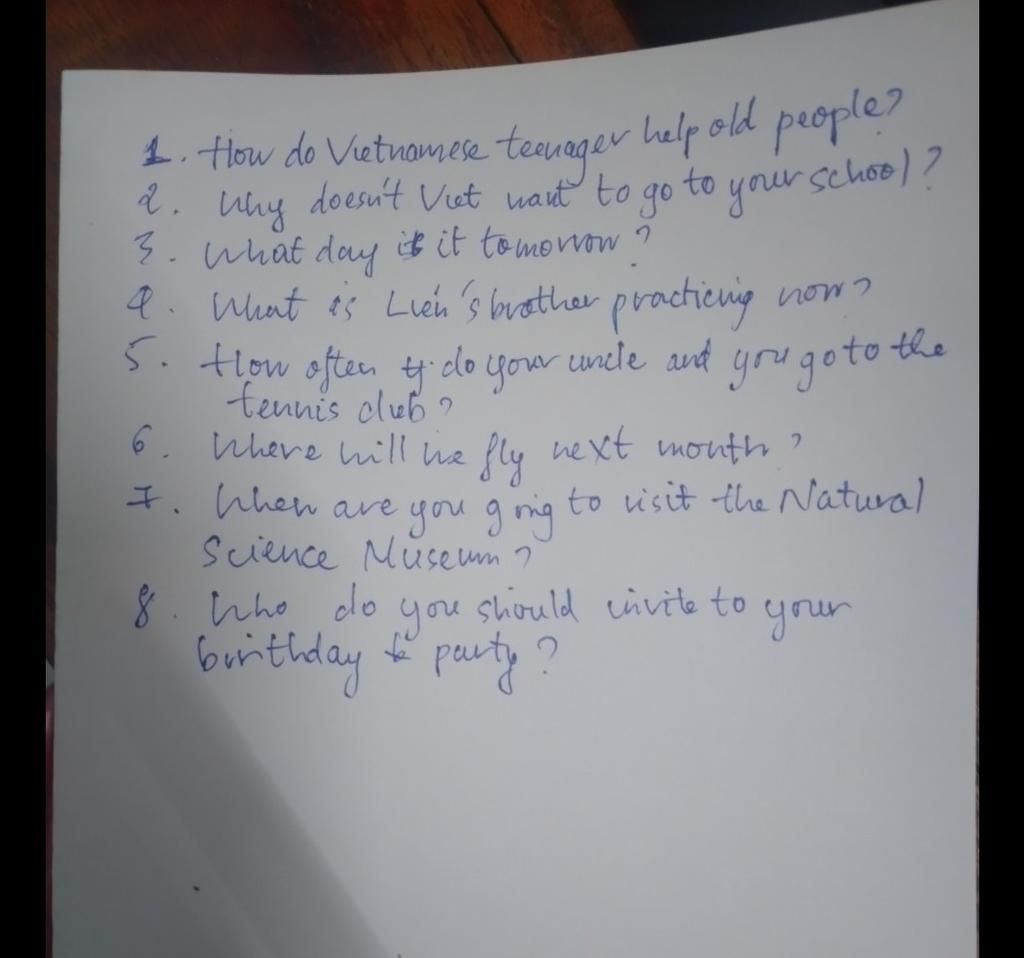 1. How do Vietnamese teenager help old people?
2. Why doesn't Viet want to go to your school?
3. What day is it tomorrow?
4. What is Lien's brother practicing now?
5. How often do your uncle and you go to the
tennis club?
6. Where will he fly next month?
7. When are you going to visit the Natural
Science Museum?
8. Who do you should invite to your
birthday party?